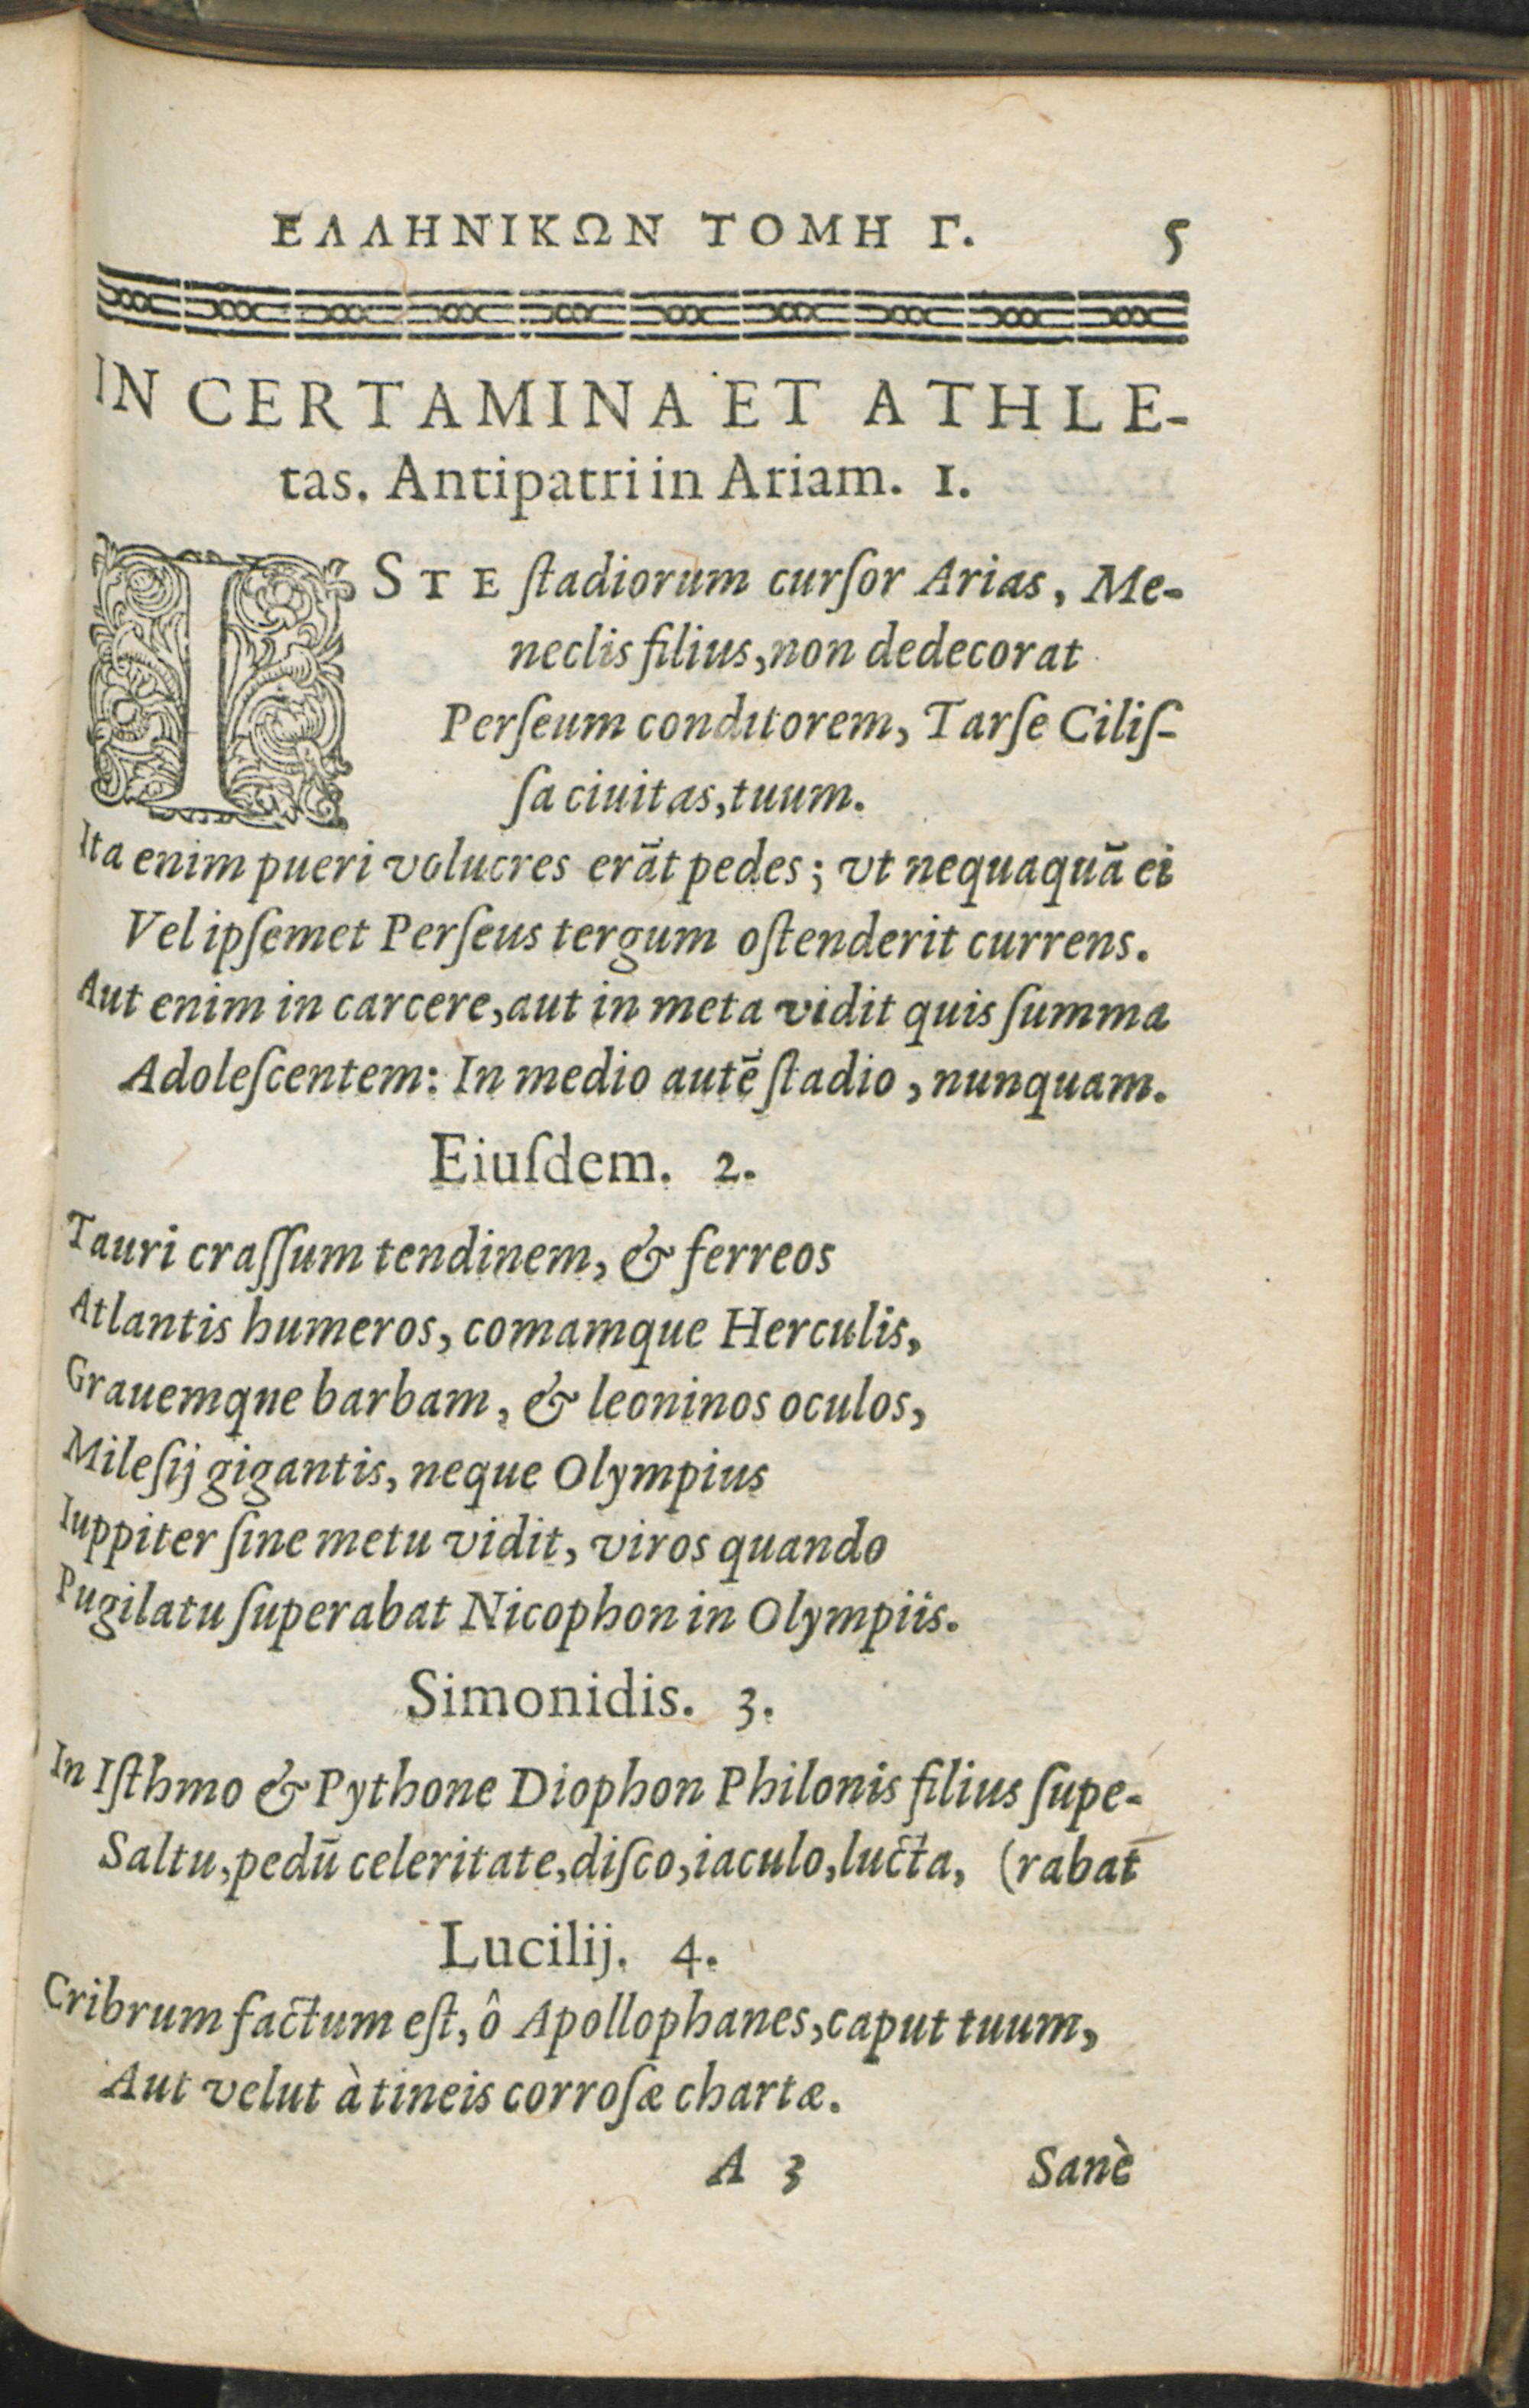 ΕΛΛΗΝΙΚΩΝ ΤΟΜΗ Γ. 5
IN CERTAMINA ET ATHLE-
tas. Antipatri in Ariam. 1.
ISTE ſtadiorum curſor Arias, Me-
neclis filius, non dedecorat
Perſeum conditorem, Tarſe Ciliſ-
ſa ciuitas, tuum.
Ita enim pueri volucres erãt pedes; vt nequaquã ei
Vel ipſemet Perſeus tergum oſtenderit currens.
Aut enim in carcere, aut in meta vidit quis ſumma
Adoleſcentem: In medio autẽ ſtadio, nunquam.
Eiuſdem. 2.
Tauri craſſum tendinem, & ferreos
Atlantis humeros, comamque Herculis,
Grauemqne barbam, & leoninos oculos,
Mileſij gigantis, neque Olympius
Iuppiter ſine metu vidit, viros quando
Pugilatu ſuperabat Nicophon in Olympiis.
Simonidis. 3.
In Iſthmo & Pythone Diophon Philonis filius ſupe-
Saltu, pedũ celeritate, diſco, iaculo, lucta, (rabat
Lucilij. 4.
Cribrum factum eſt, ô Apollophanes, caput tuum,
Aut velut à tineis corroſæ chartæ.
A 3 Sanè